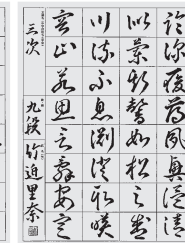 臨深履薄夙興温凊
似蘭斯馨如松之盛
川流不息淵澄取映
容止若思言辞安定
三次 九段 竹近里奈